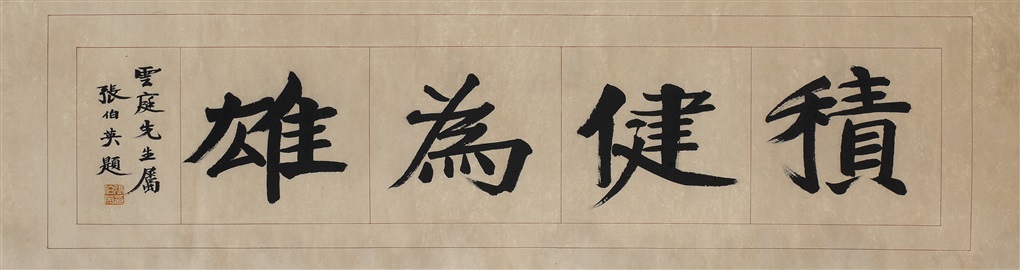 積健為雄
雲庭先生屬
張伯英題